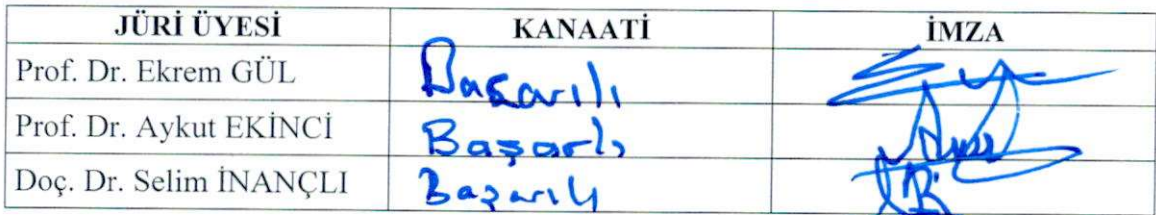 JÜRİ ÜYESİ KANAATİ İMZA
Prof. Dr. Ekrem GÜL Başarılı
Prof. Dr. Aykut EKİNCİ Başarlı
Doç. Dr. Selim İNANÇLI Başarılı